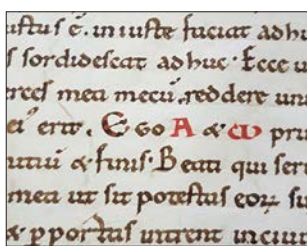 iustus ē. iniuste faciat adhu
s sordidescat adhuc. Ecce u
erces mea mecū. reddere uni
ei erit. Ego A & ω pri
utiuū & finis. Beati qui seru
mea ut sit potestas eoꝝ su
& portas intrent in ciui